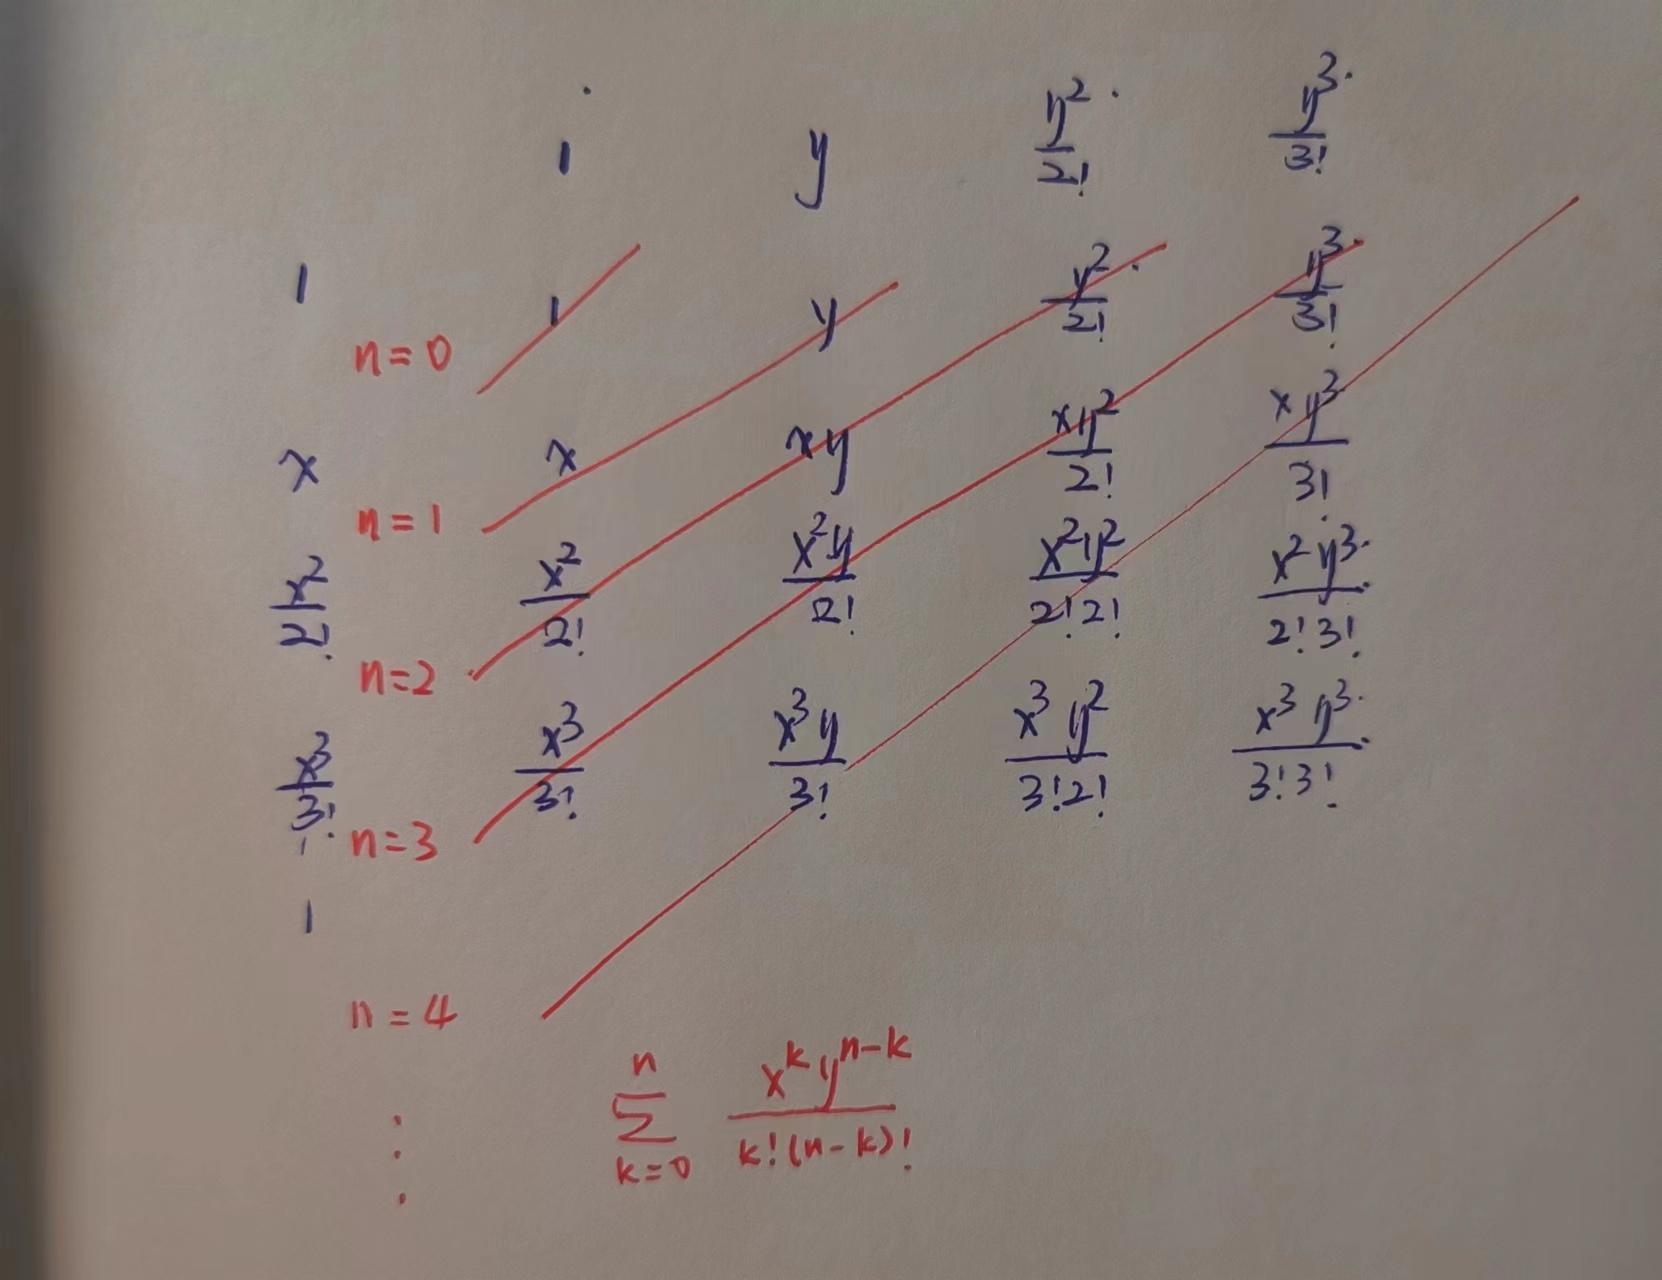 1 y y²/2! y³/3!
1 1 y y²/2! y³/3!
n=0
x x xy xy²/2! xy³/3!
n=1
x²/2! x²/2! x²y/2! x²y²/2!2! x²y³/2!3!
n=2
x³/3! x³/3! x³y/3! x³y²/3!2! x³y³/3!3!
n=3
n=4
n
∑ x^k y^(n-k) / k!(n-k)!
k=0